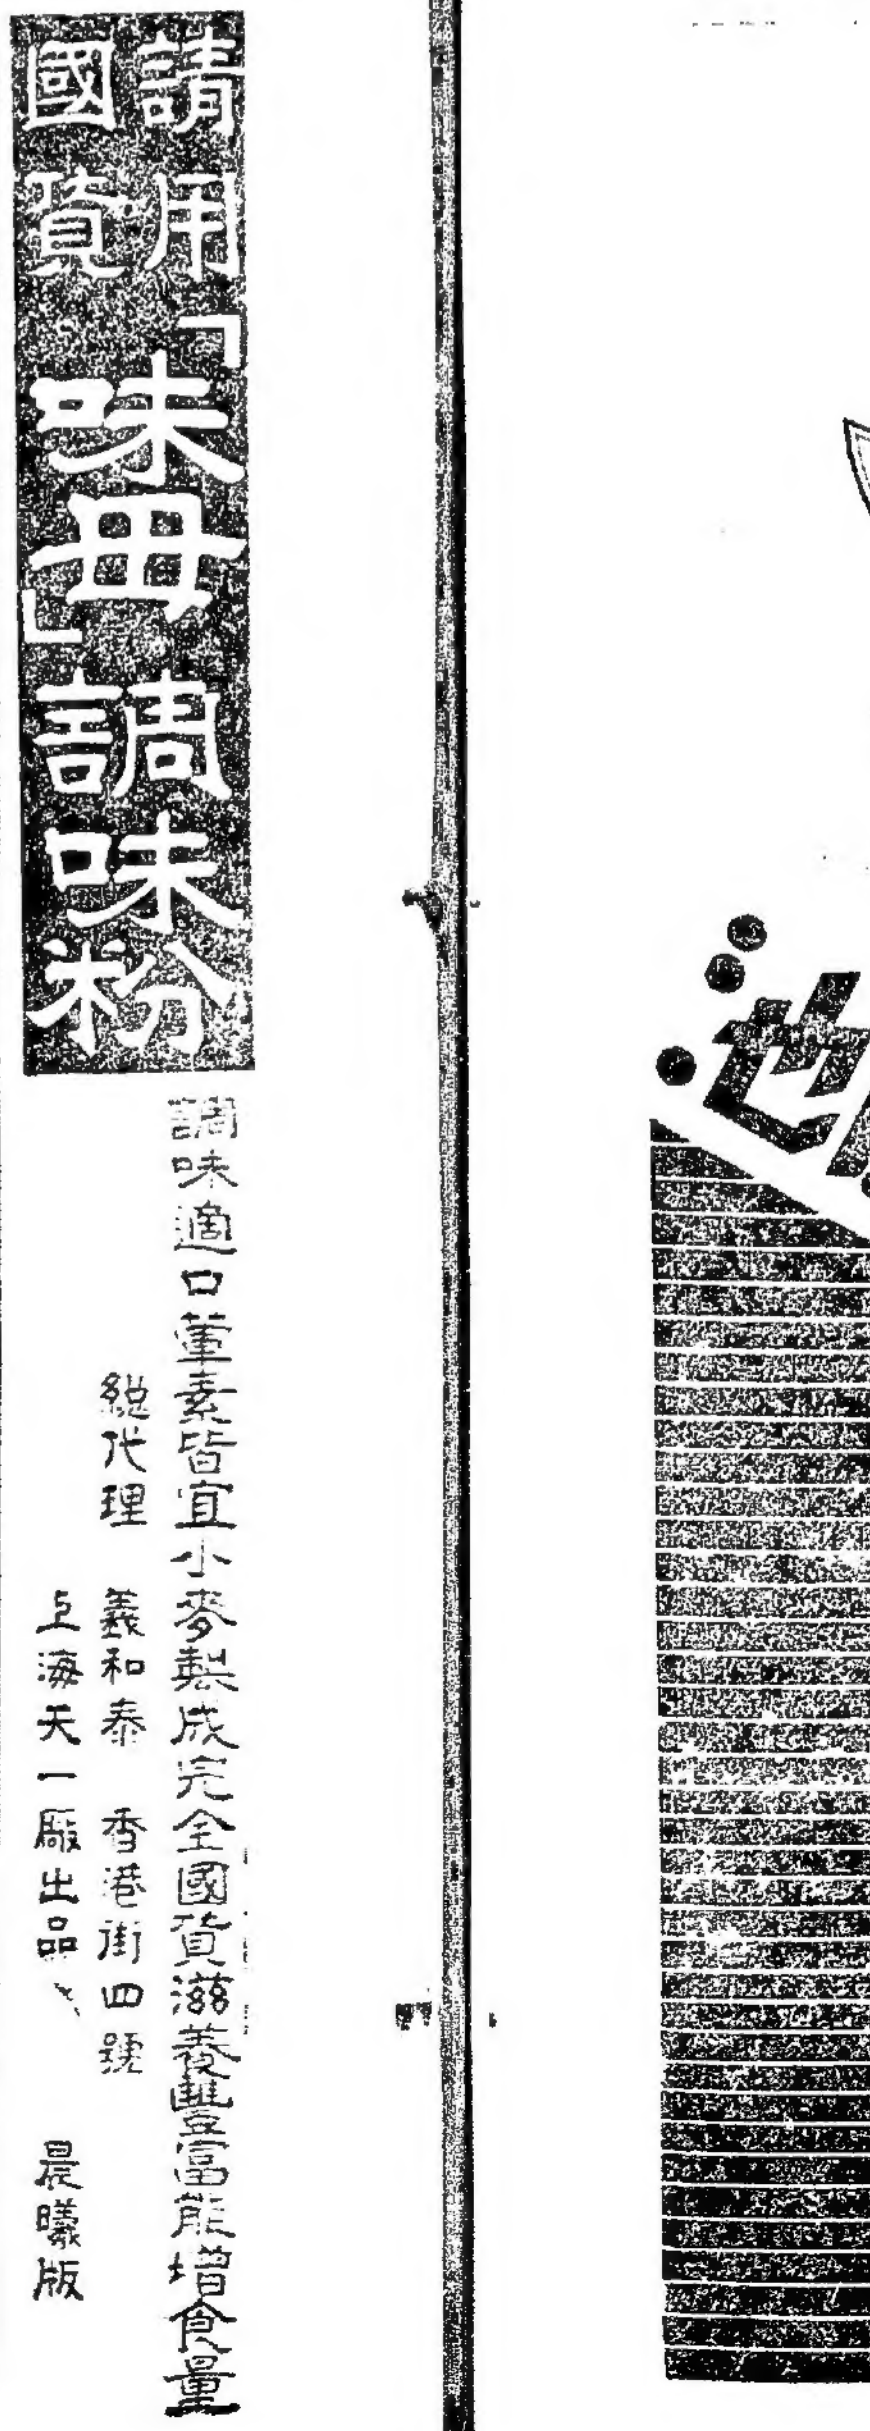 請用國貨
「味母」調味粉
調味適口葷素皆宜小麥製成完全國貨滋養豐富能增食量
総代理　義和泰　香港街四號
上海天一厰出品
晨曦版